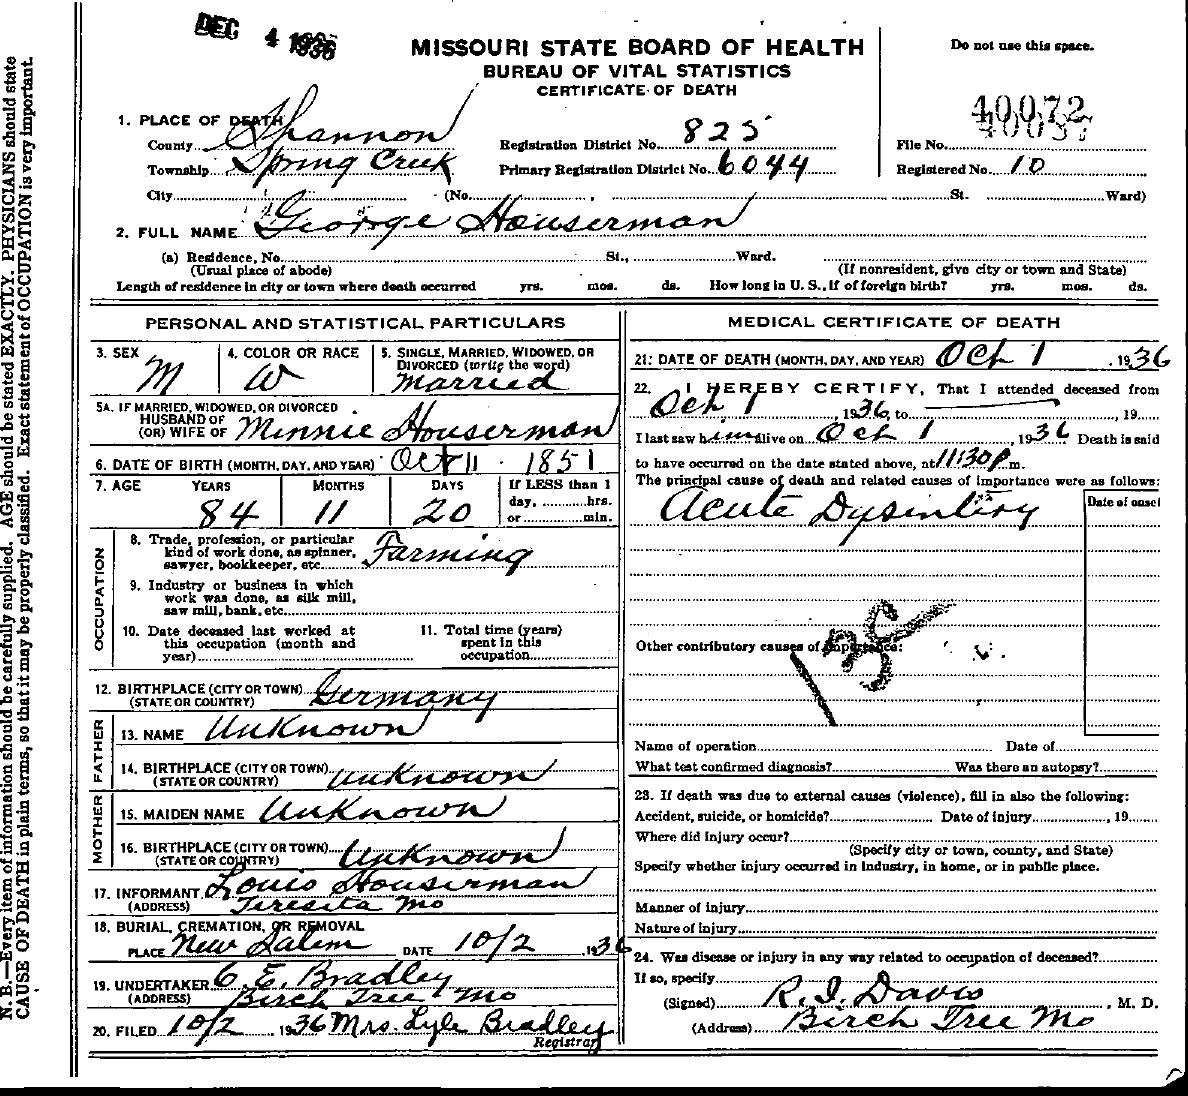 DEC 4 1936
MISSOURI STATE BOARD OF HEALTH
BUREAU OF VITAL STATISTICS
CERTIFICATE OF DEATH
Do not use this space.
40072
1. PLACE OF DEATH
County Shannon
Township Spring Creek
City (No. St. Ward)
Registration District No. 825
Primary Registration District No. 6044
File No.
Registered No. 10
2. FULL NAME George Houserman
(a) Residence, No. St., Ward.
(Usual place of abode) (If nonresident, give city or town and State)
Length of residence in city or town where death occurred yrs. mos. ds. How long in U. S., if of foreign birth? yrs. mos. ds.
PERSONAL AND STATISTICAL PARTICULARS
3. SEX M
4. COLOR OR RACE W
5. SINGLE, MARRIED, WIDOWED, OR DIVORCED (write the word) Married
5A. IF MARRIED, WIDOWED, OR DIVORCED
HUSBAND OF
(OR) WIFE OF Minnie Houserman
6. DATE OF BIRTH (MONTH, DAY, AND YEAR) Oct 11 1851
7. AGE YEARS MONTHS DAYS If LESS than 1
84 11 20 day, hrs.
or min.
OCCUPATION
8. Trade, profession, or particular
kind of work done, as spinner,
sawyer, bookkeeper, etc. Farming
9. Industry or business in which
work was done, as silk mill,
saw mill, bank, etc.
10. Date deceased last worked at
this occupation (month and
year)
11. Total time (years)
spent in this
occupation
12. BIRTHPLACE (CITY OR TOWN) Germany
(STATE OR COUNTRY)
FATHER
13. NAME Unknown
14. BIRTHPLACE (CITY OR TOWN) Unknown
(STATE OR COUNTRY)
MOTHER
15. MAIDEN NAME Unknown
16. BIRTHPLACE (CITY OR TOWN) Unknown
(STATE OR COUNTRY)
17. INFORMANT Louis Houserman
(ADDRESS) Teresita Mo
18. BURIAL, CREMATION, OR REMOVAL
PLACE New Salem DATE 10/2, 1936
19. UNDERTAKER C. E. Bradley
(ADDRESS) Birch Tree Mo
20. FILED 10/2, 1936 Mrs. Lyle Bradley
Registrar
MEDICAL CERTIFICATE OF DEATH
21. DATE OF DEATH (MONTH, DAY, AND YEAR) Oct 1, 1936
22. I HEREBY CERTIFY, That I attended deceased from
Oct 1, 1936, to , 19
I last saw him alive on Oct 1, 1936 Death is said
to have occurred on the date stated above, at 11:30 P m.
The principal cause of death and related causes of importance were as follows:
Acute Dysintiry
Date of onset
Other contributory causes of importance:
Name of operation Date of
What test confirmed diagnosis? Was there an autopsy?
23. If death was due to external causes (violence), fill in also the following:
Accident, suicide, or homicide? Date of injury , 19
Where did injury occur?
(Specify city or town, county, and State)
Specify whether injury occurred in industry, in home, or in public place.
Manner of injury
Nature of injury
24. Was disease or injury in any way related to occupation of deceased?
If so, specify
(Signed) R. I. Davis, M. D.
(Address) Birch Tree Mo
N. B.—Every item of information should be carefully supplied. AGE should be stated EXACTLY. PHYSICIANS should state
CAUSE OF DEATH in plain terms, so that it may be properly classified. Exact statement of OCCUPATION is very important.